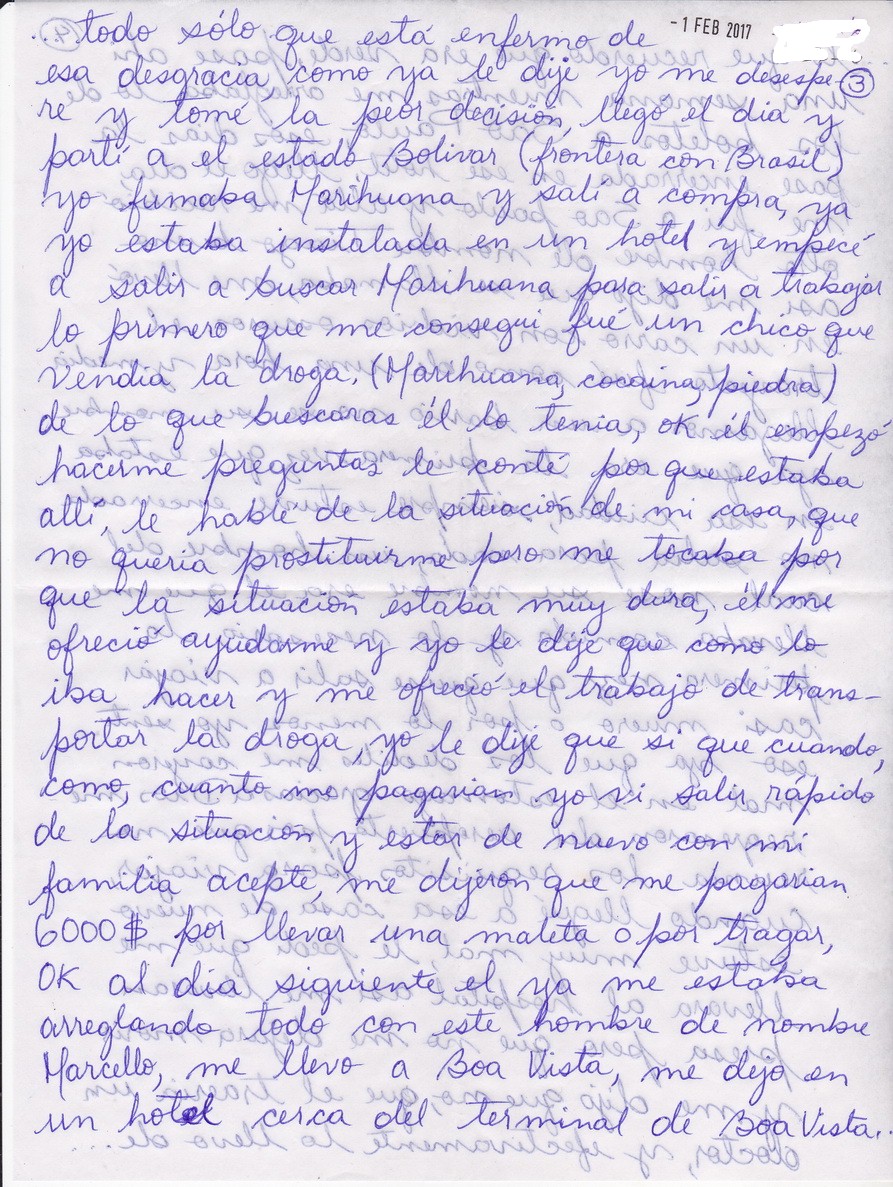 ...todo sólo que está enfermo de
-1 FEB 2017
esa desgracia, como ya le dije yo me desespe-
③
ré y tomé la peor decisión, llego el dia y
partí a el estado Bolivar (frontera con Brasil)
yo fumaba Marihuana y salí a compra, ya
yo estaba instalada en un hotel y empecé
a salir a buscar Marihuana para salir a trabajar
lo primero que me consegui fué un chico que
vendia la droga. (Marihuana, cocaina, piedra)
de lo que buscaras él lo tenia, OK él empezó
hacerme preguntas le conté por que estaba
allí, le hable de la situación de mi casa, que
no queria prostituirme pero me tocaba por
que la situación estaba muy dura, él me
ofreció ayudarme y yo le dije que como lo
iba hacer y me ofreció el trabajo de trans-
portar la droga, yo le dije que si que cuando,
como, cuanto me pagarian yo vi salir rápido
de la situación y estar de nuevo con mi
familia acepte, me dijeron que me pagarian
6000$ por llevar una maleta o por tragar,
OK al dia siguiente el ya me estaba
arreglando todo con este hombre de nombre
Marcello, me llevo a Boa Vista, me dejo en
un hotel cerca del terminal de Boa Vista...